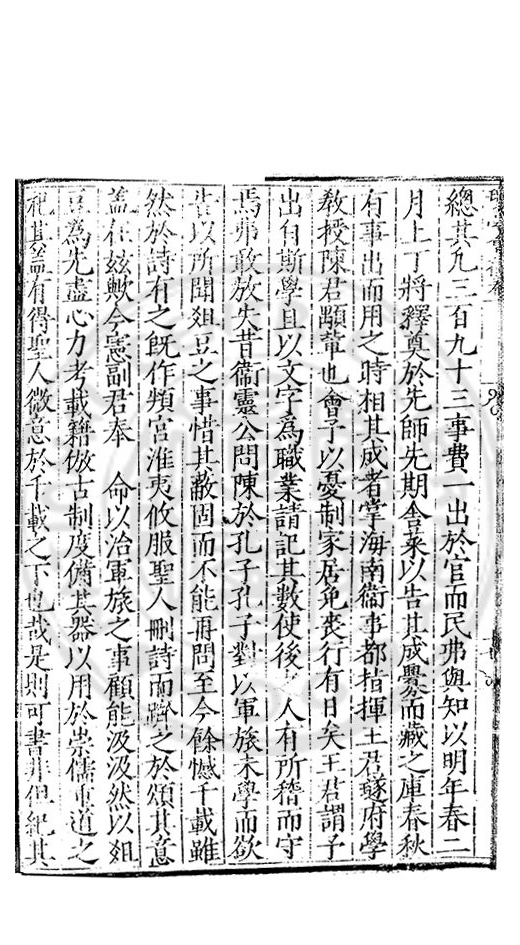 總其凡三百九十三事費一出於官而民弗與知以明年春二
月上丁將釋奠於先師先期舍菜以告其成爨而藏之庫春秋
有事出而用之時相其成者掌海南衞事都指揮王君璲府學
敎授陳君顒輩也會予以憂制家居免喪行有日矣王君謂予
出自斯學且以文字為職業請記其數使後人有所稽而守
焉弗敢放失昔衞靈公問陳於孔子孔子對以軍旅未學而欲
告以所聞俎豆之事惜其蔽固而不能再問至今餘憾千載雖
然於詩有之旣作頖宮淮夷攸服聖人刪詩而躋之於頌其意
蓋在玆歟今憲副君奉 命以治軍旅之事顧能汲汲然以俎
豆為先盡心力考載籍倣古制度備其器以用於崇儒重道之
祀其蓋有得聖人微意於千載之下也哉是則可書非但紀其